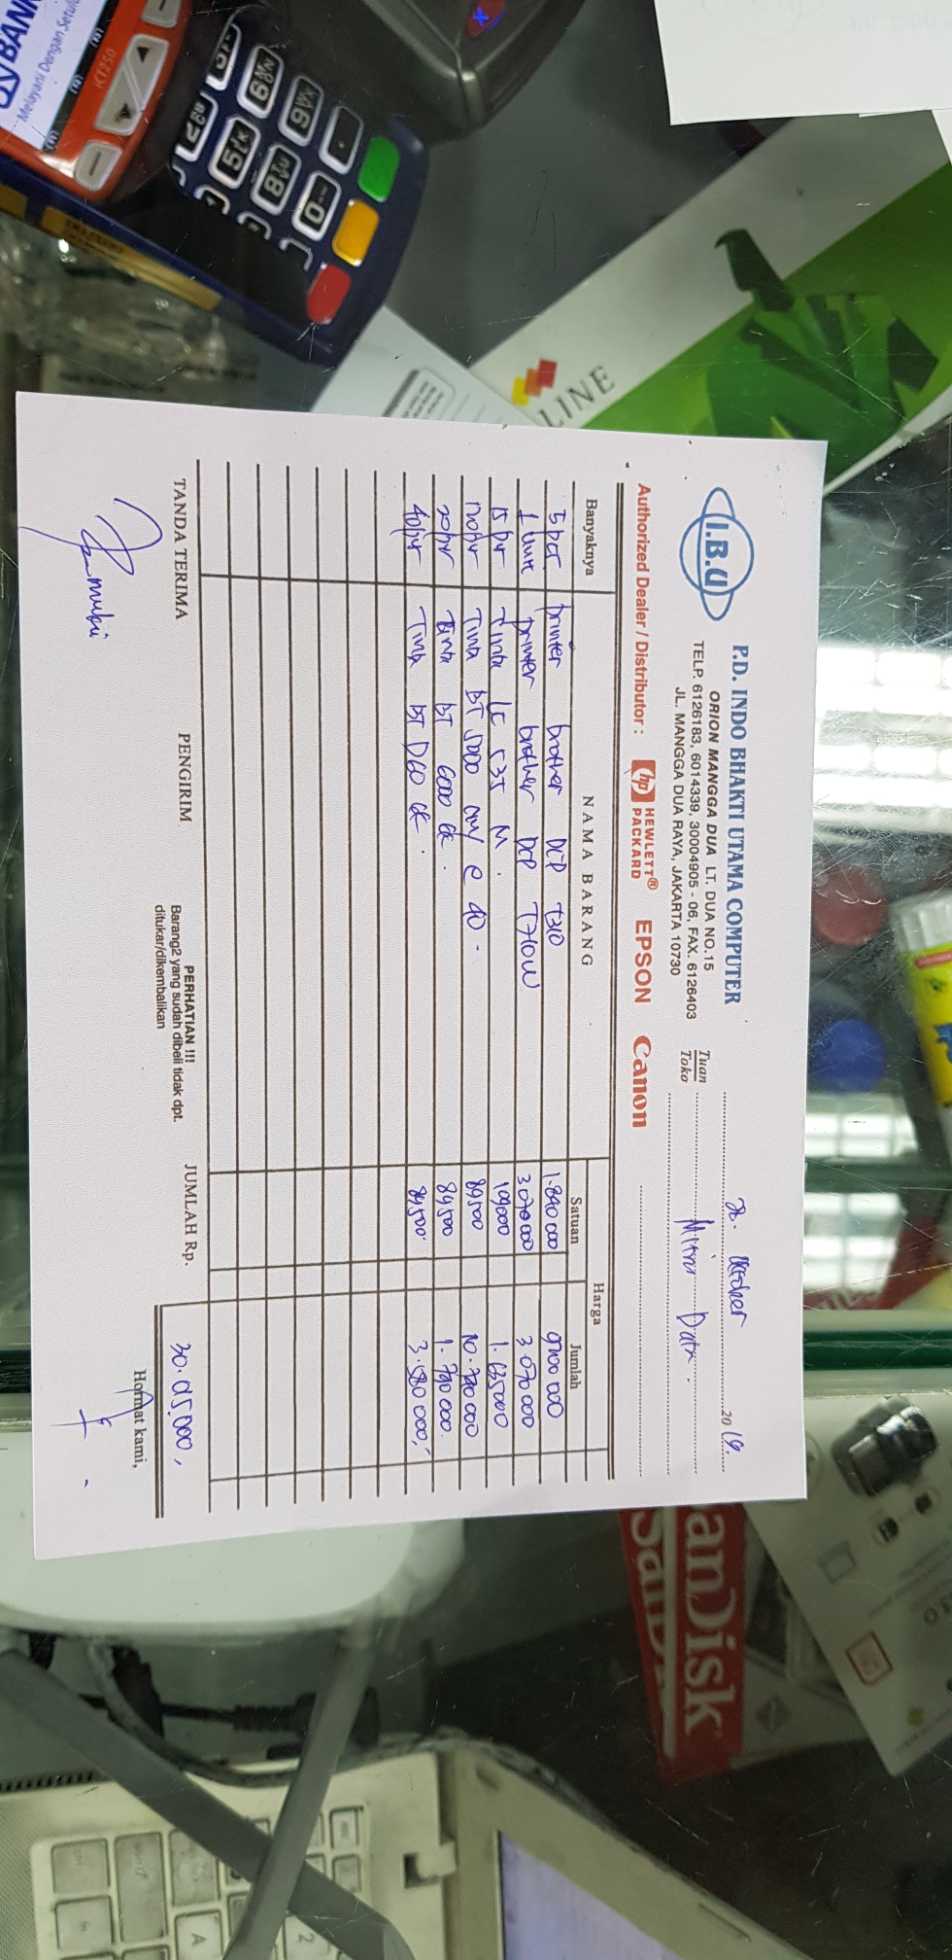 BANK
Melayani Dengan Setulus
ICT250
LINE
I.B.U
P.D. INDO BHAKTI UTAMA COMPUTER
ORION MANGGA DUA LT. DUA NO.15
TELP. 6126183, 6014339, 30004905 - 06, FAX. 6126403
JL. MANGGA DUA RAYA, JAKARTA 10730
Oktober 2019.
Tuan
Toko
Mitra Data.
Authorized Dealer / Distributor : hp HEWLETT® PACKARD EPSON Canon
Banyaknya NAMA BARANG Harga
Satuan Jumlah
5 pcs printer brother DCP T310 1.840 000 9200 000
1 unit printer brother DCP T710W 3070 000 3.070 000
15 pcs Tinta LC 535 M. 109000 1.635000
120 pcs Tinta BT 5000 cmy @ 40. 89500 10.740 000
20 pcs Tinta BT 6000 BK. 89500 1.790 000.
40 pcs Tinta BT D60 BK. 89500. 3.580 000,-
TANDA TERIMA PENGIRIM
PERHATIAN !!!
Barang2 yang sudah dibeli tidak dpt.
ditukar/dikembalikan
JUMLAH Rp. 30.015.000,
Hormat kami,
anDisk
SanDisk